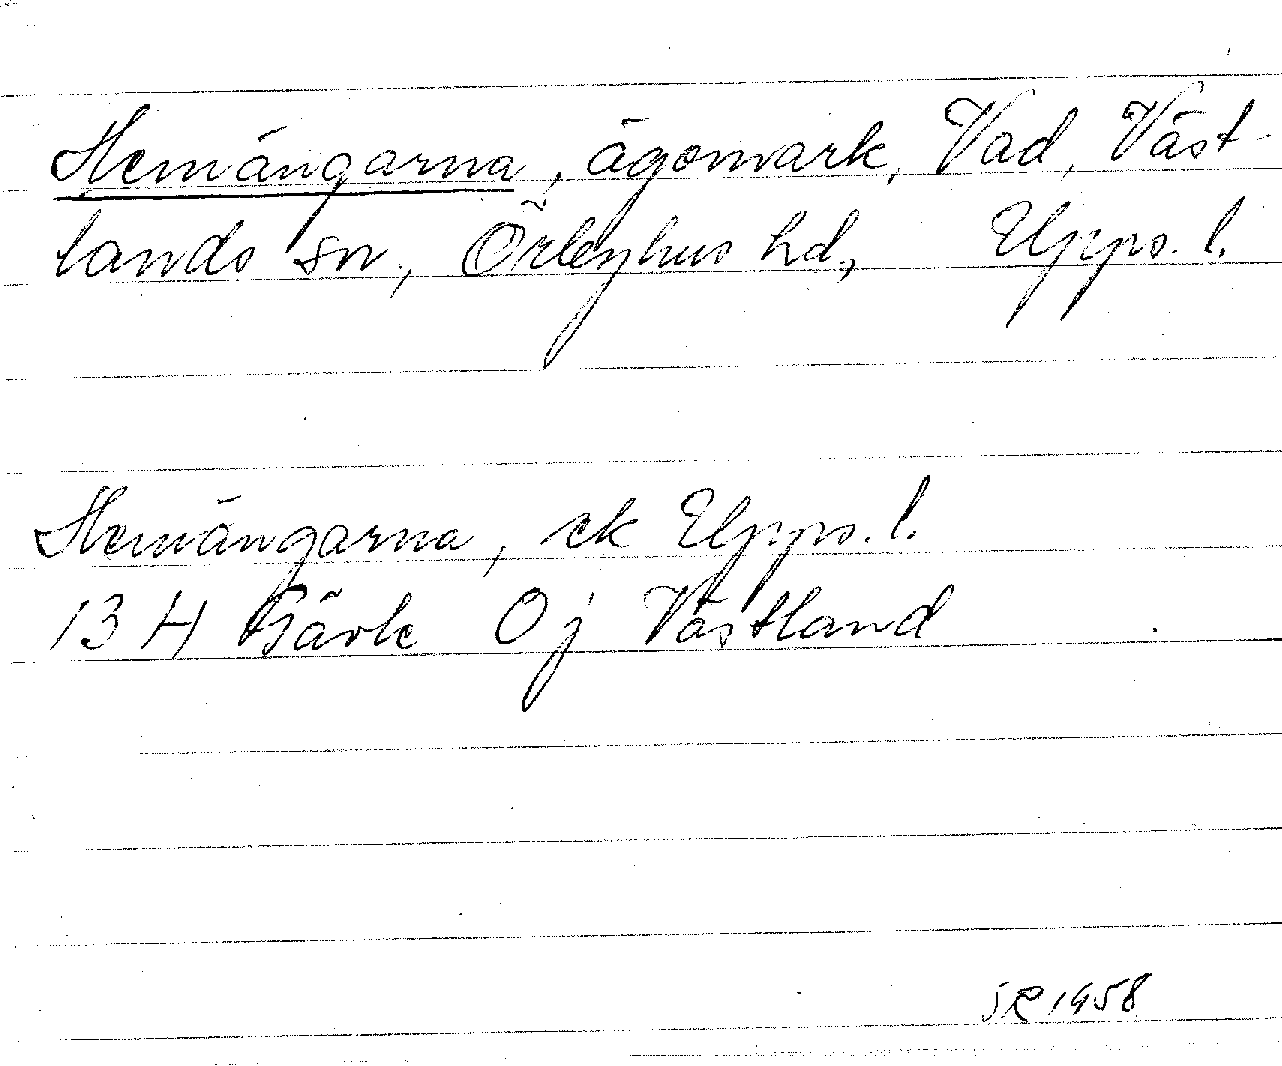 Hemängarna, ägomark, Vad, Väst-
lands sn, Örbyhus hd, Upps. l.
Hemängarna, ek Upps. l.
13 H Gävle Oj Västland
SR 1958